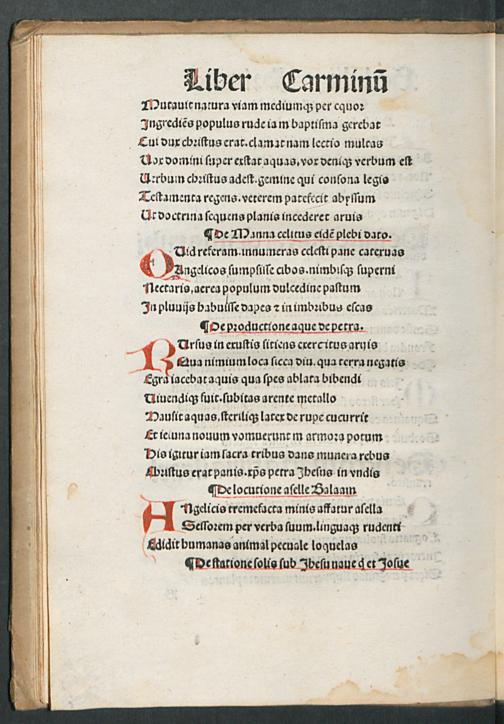 Liber Carminū
Mutauit natura viam mediumqꝫ per equor
Ingrediēs populus rude iam baptisma gerebat
Cui dux christus erat. clamat nam lectio multas
Vox domini super extat aquas, vox deniqꝫ verbum est
Verbum christus adest. gemine qui consona legis
Testamenta regens. veterem patefecit abyssum
Ut doctrina sequens planis incederet aruis
¶De Manna celitus eidē plebi dato.
QVid referam. innumeras celesti pane cateruas
Angelicos sumpsisse cibos. nimbisqꝫ superni
Nectaris. aerea populum dulcedine pastum
In pluuijs habuisse dapes ⁊ in imbribus escas
¶De productione aque de petra.
RUrsus in exustis sitiens exercitus aruis
Qua nimium loca sicca diu. qua terra negatis
Egra iacebat aquis qua spes ablata bibendi
Viuendiqꝫ fuit. subitas arente metallo
Hausit aquas. steriliqꝫ latex de rupe cucurrit
Et ieiuna nouum vomuerunt marmora potum
His igitur iam sacra tribus dans munera rebus
Christus erat panis. xp̄s petra Jhesus in vndis
¶De locutione aselle Balaam
ANgelicis tremefacta minis affatur asella
Sessorem per verba suum. linguaqꝫ rudenti
Edidit humanas animal pecuale loquelas
¶De statione solis sub Jhesu naue q̄ et Josue